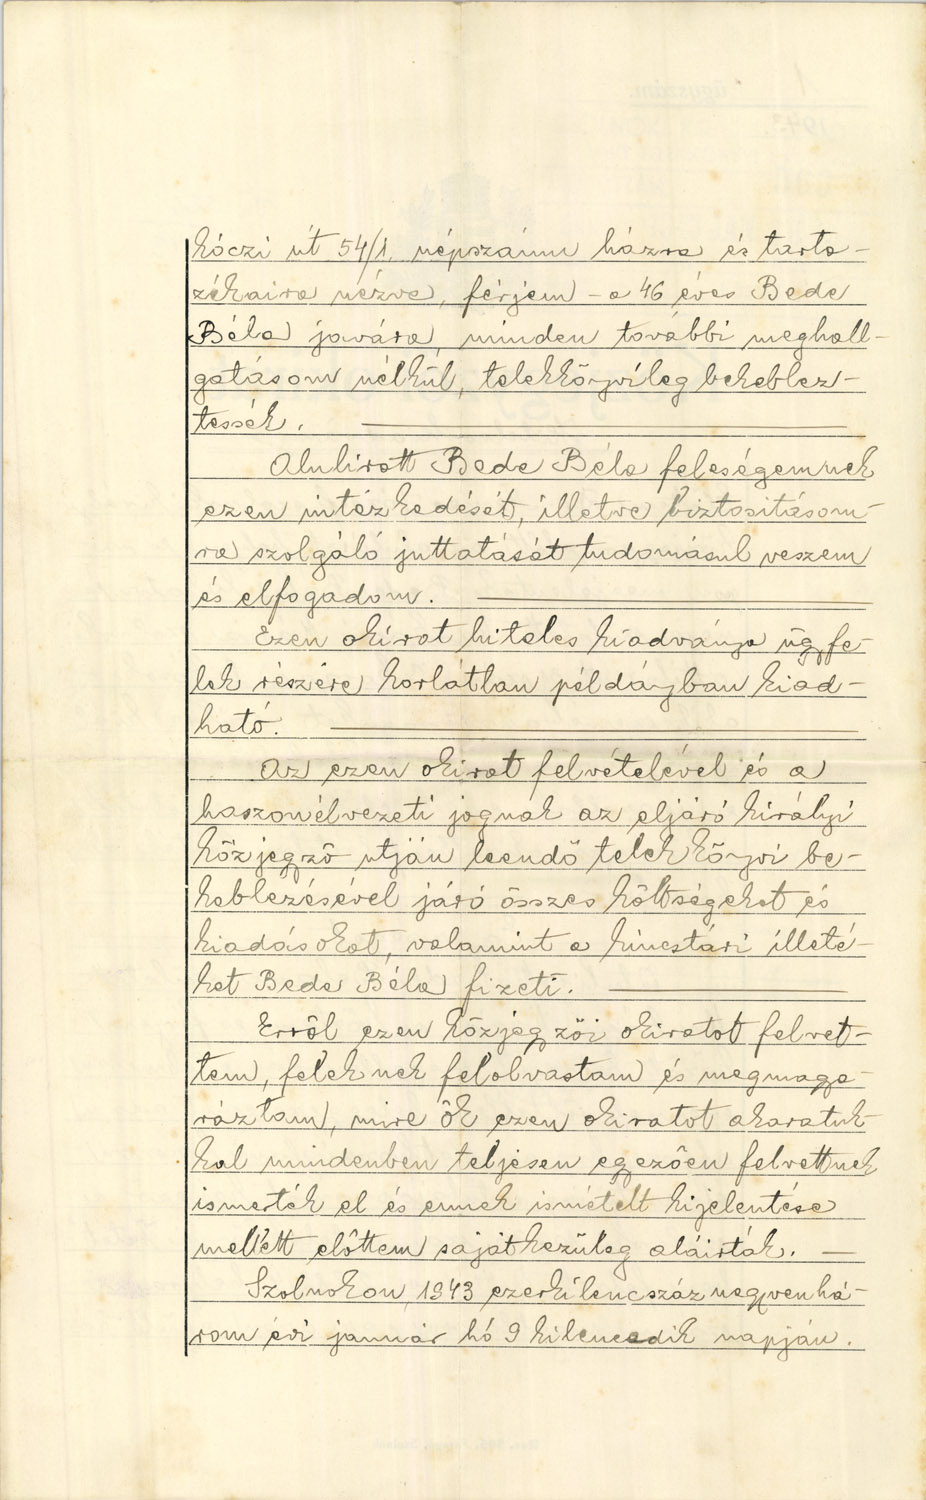 kóczi út 54/1. népszámu házra és tarto-
zékaira nézve, férjem - a 46 éves Bede
Béla javára, minden további meghall-
gatásom nélkül, telekkönyvileg bekeblez-
tessék.
Alulirott Bede Béla feleségemnek
ezen intézkedését, illetve biztositásom-
ra szolgáló juttatását tudomásul veszem
és elfogadom.
Ezen okirat hiteles kiadványa ügyfe-
lek részére korlátlan példányban kiad-
ható.
Az ezen okirat felvételével és a
haszonélvezeti jognak az eljáró királyi
közjegyző utján leendő telekkönyvi be-
keblezésével járó összes költségeket és
kiadásokat, valamint a kincstári illeté-
ket Bede Béla fizeti.
Erről ezen közjegyzői okiratot felvet-
tem, feleknek felolvastam és megmagya-
ráztam, mire ők ezen okiratot akaratuk-
kal mindenben teljesen egyezően felvettnek
ismerték el és ennek ismételt kijelentése
mellett előttem sajátkezüleg aláirták. —
Szolnokon, 1943 ezerkilencszáznegyvenhá-
rom évi január hó 9 kilencedik napján.